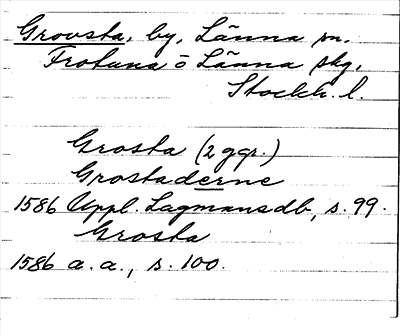 Grovsta, by, Länna sn.
Frötuna o Länna skg,
Stockh. l.
Grosta (2 ggr.)
Grostaderne
1586 Uppl. Lagmansdb, s. 99.
Grosta
1586 a. a., s. 100.